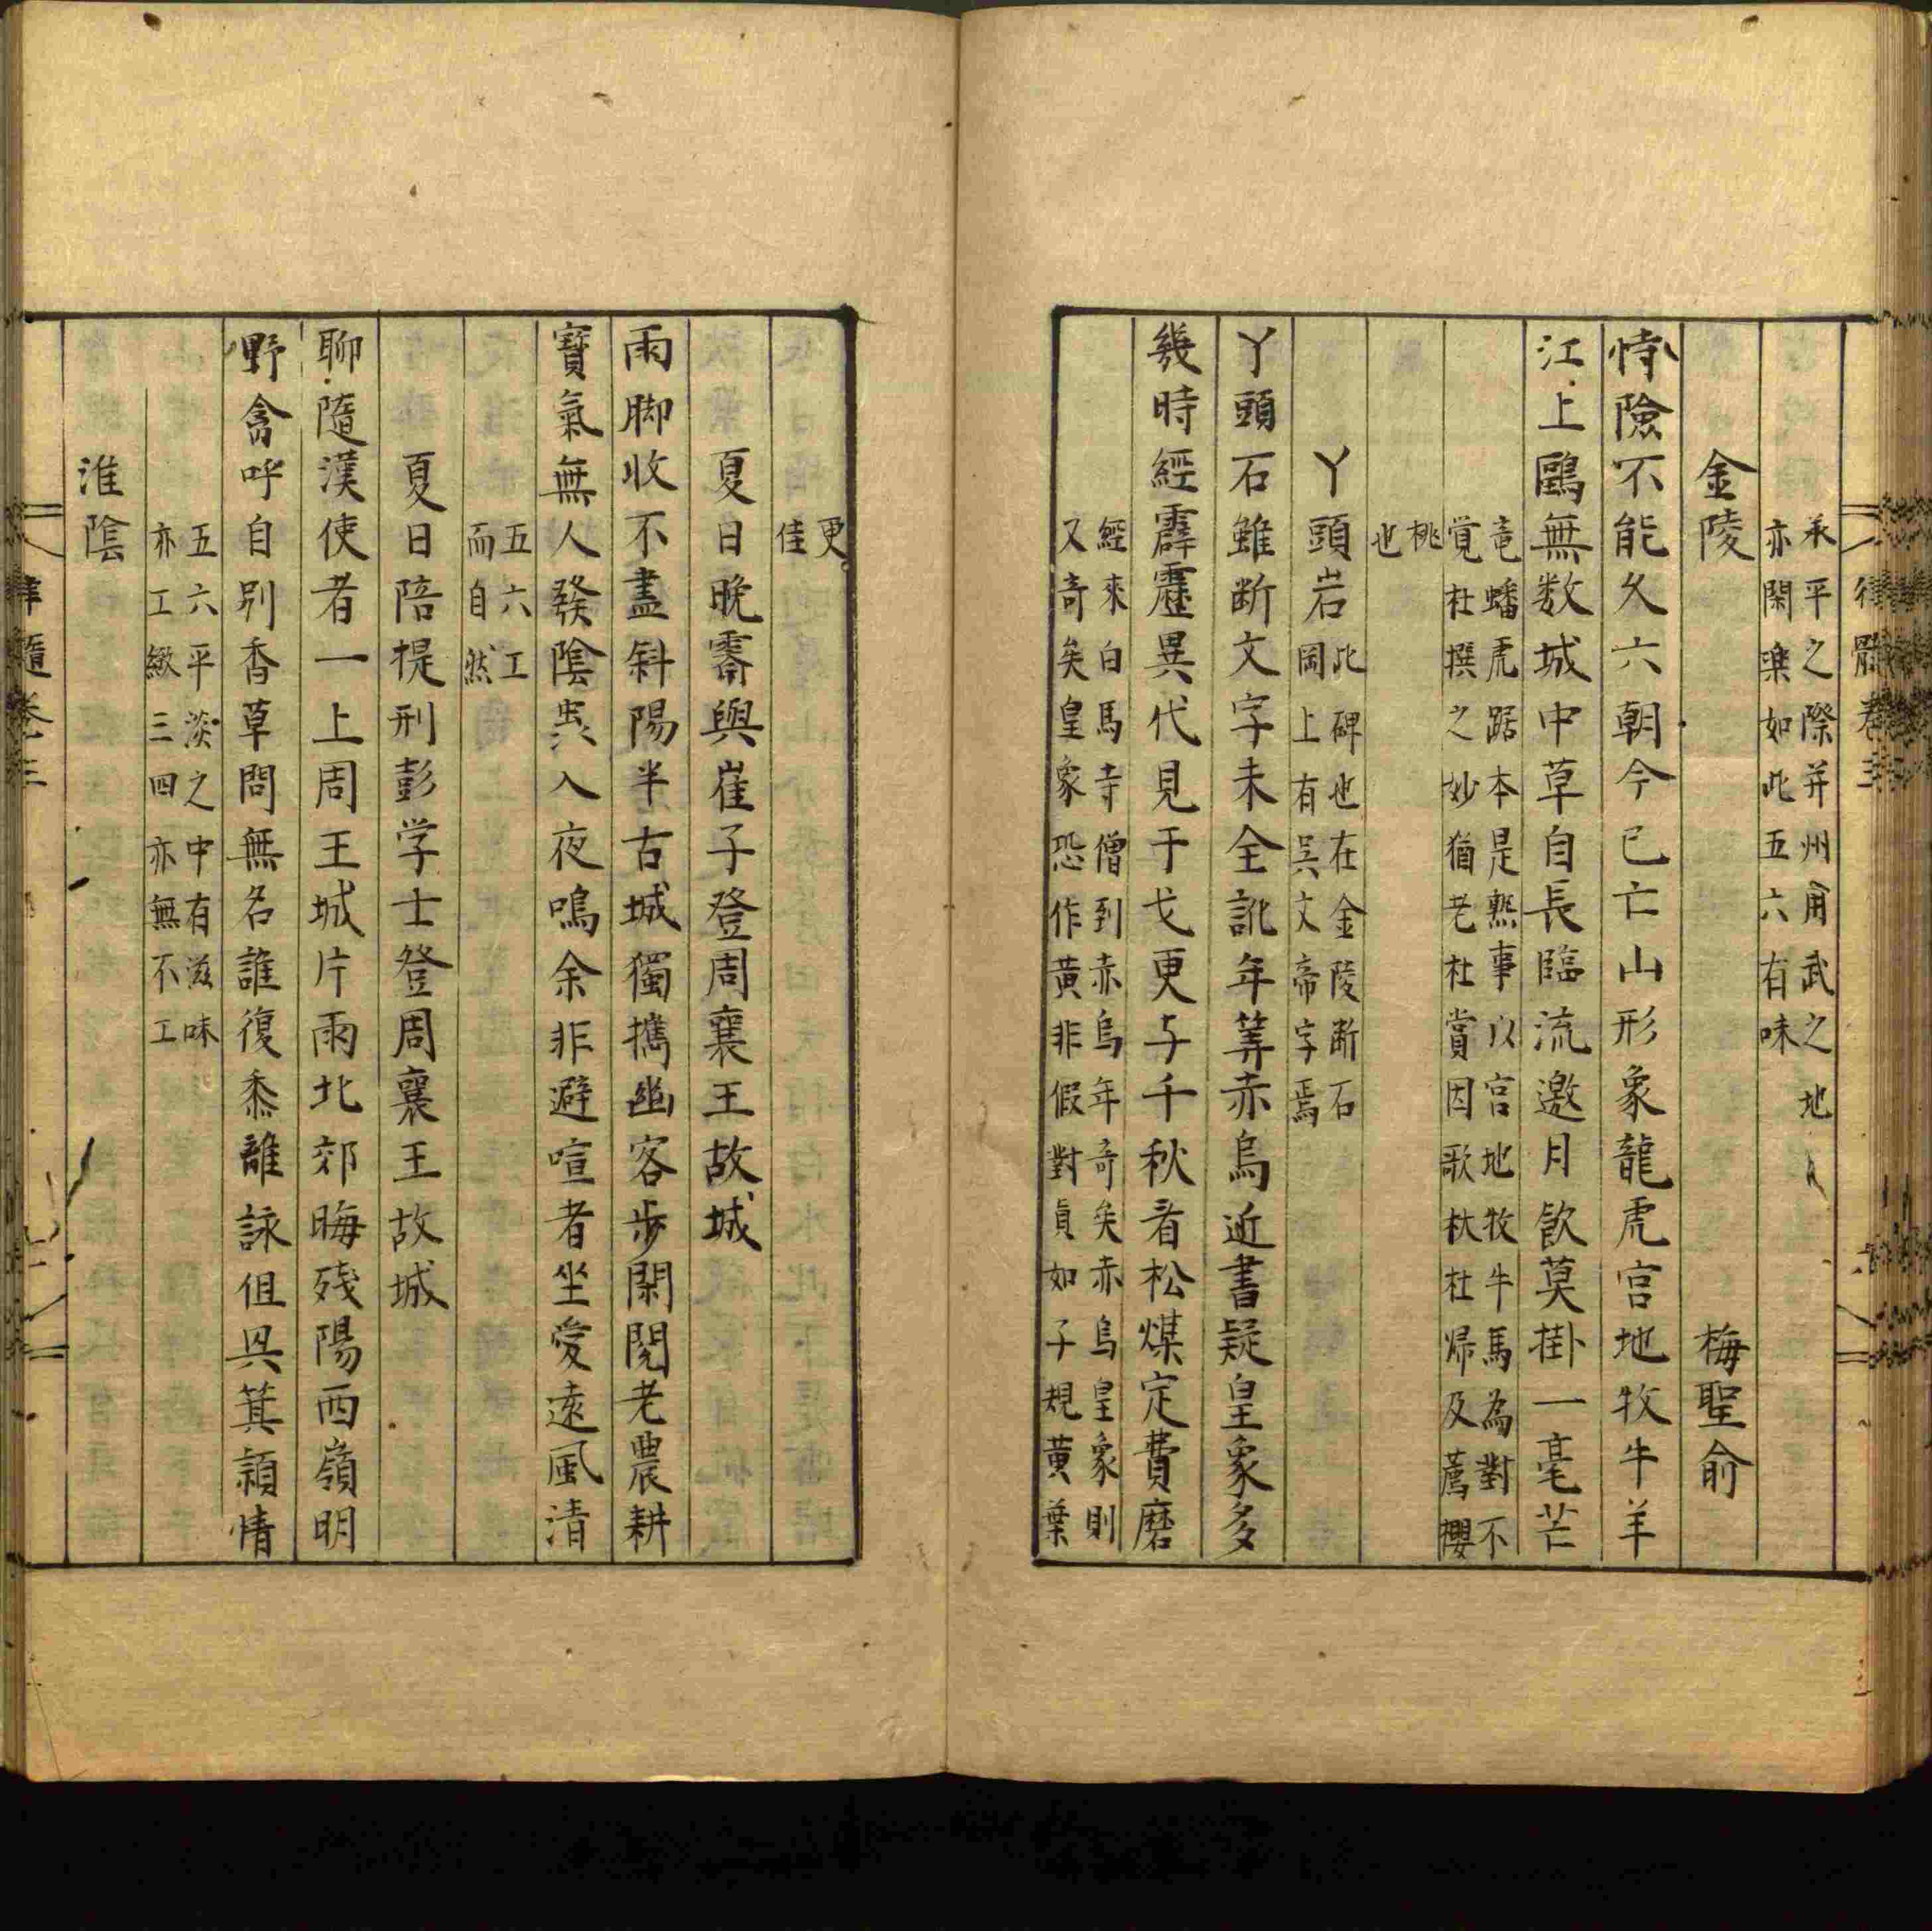 承平之際并州用武之地
亦閑楽如此五六有味
金陵　梅聖俞
恃險不能久六朝今已亡山形象龍虎宮地牧牛羊
江上鷗無数城中草自長臨流邀月飲莫掛一毫芒
竜蟠虎踞本是熟事以宮地牧牛馬為對不
覚杜撰之妙猶老杜賞因歌杕杜帰及薦櫻
桃
也
丫頭岩
此碑也在金陵断石
岡上有呉文帝字焉
丫頭石雖断文字未全訛年筭赤烏近書疑皇象多
幾時經霹靂異代見于戈更与千秋看松煤定費磨
經來白馬寺僧到赤烏年奇矣赤烏皇象則
又奇矣皇象恐作黄非假對真如子規黄葉
更
佳
夏日晚霽與崔子登周襄王故城
雨脚收不盡斜陽半古城獨攜幽客步閑閱老農耕
寶氣無人發陰蛩入夜鳴余非避喧者坐愛遠風清
五六工
而自然
夏日陪提刑彭学士登周襄王故城
聊隨漢使者一上周王城片雨北郊晦残陽西嶺明
野禽呼自別香草問無名誰復黍離詠但興箕潁情
五六平淡之中有滋味
亦工緻三四亦無不工
淮陰
律髓卷三